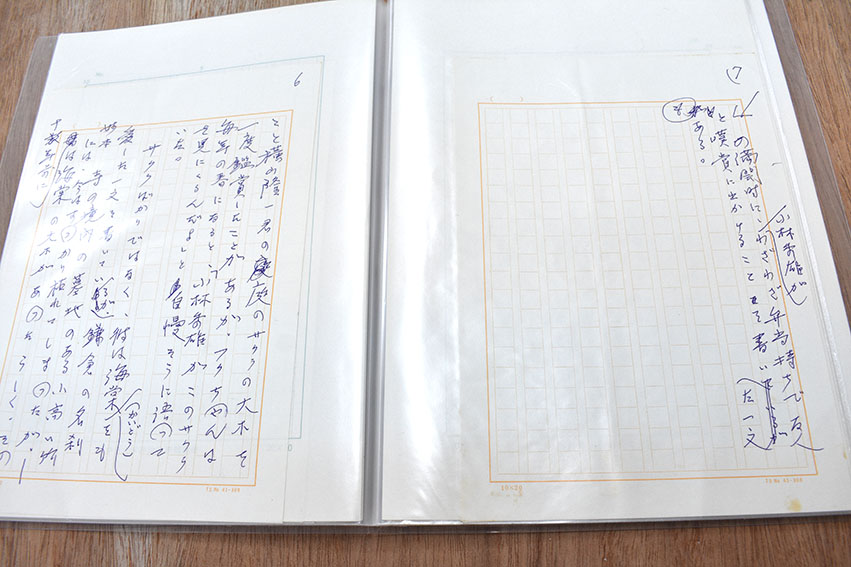 6
こと横山隆一君の庭のサクラの大木を
一度鑑賞したことがあるが、フクちゃんは
毎年の春になると、「小林秀雄がこのサクラ
を見にくるんだよ」と自慢そうに語って
いた。
サクラばかりではなく、彼は海棠(かいどう)をも
愛した一文を書いているが、鎌倉の名刹
寺の境内の墓地のある小高い所
には、今はすっかり枯れてしまったが、
海棠の大木があったらしく、その
十数年前に
7
の満開時に、小林秀雄がわざわざ弁当持ちで友人
と嘆賞に出かけることを書いた一文
もある。